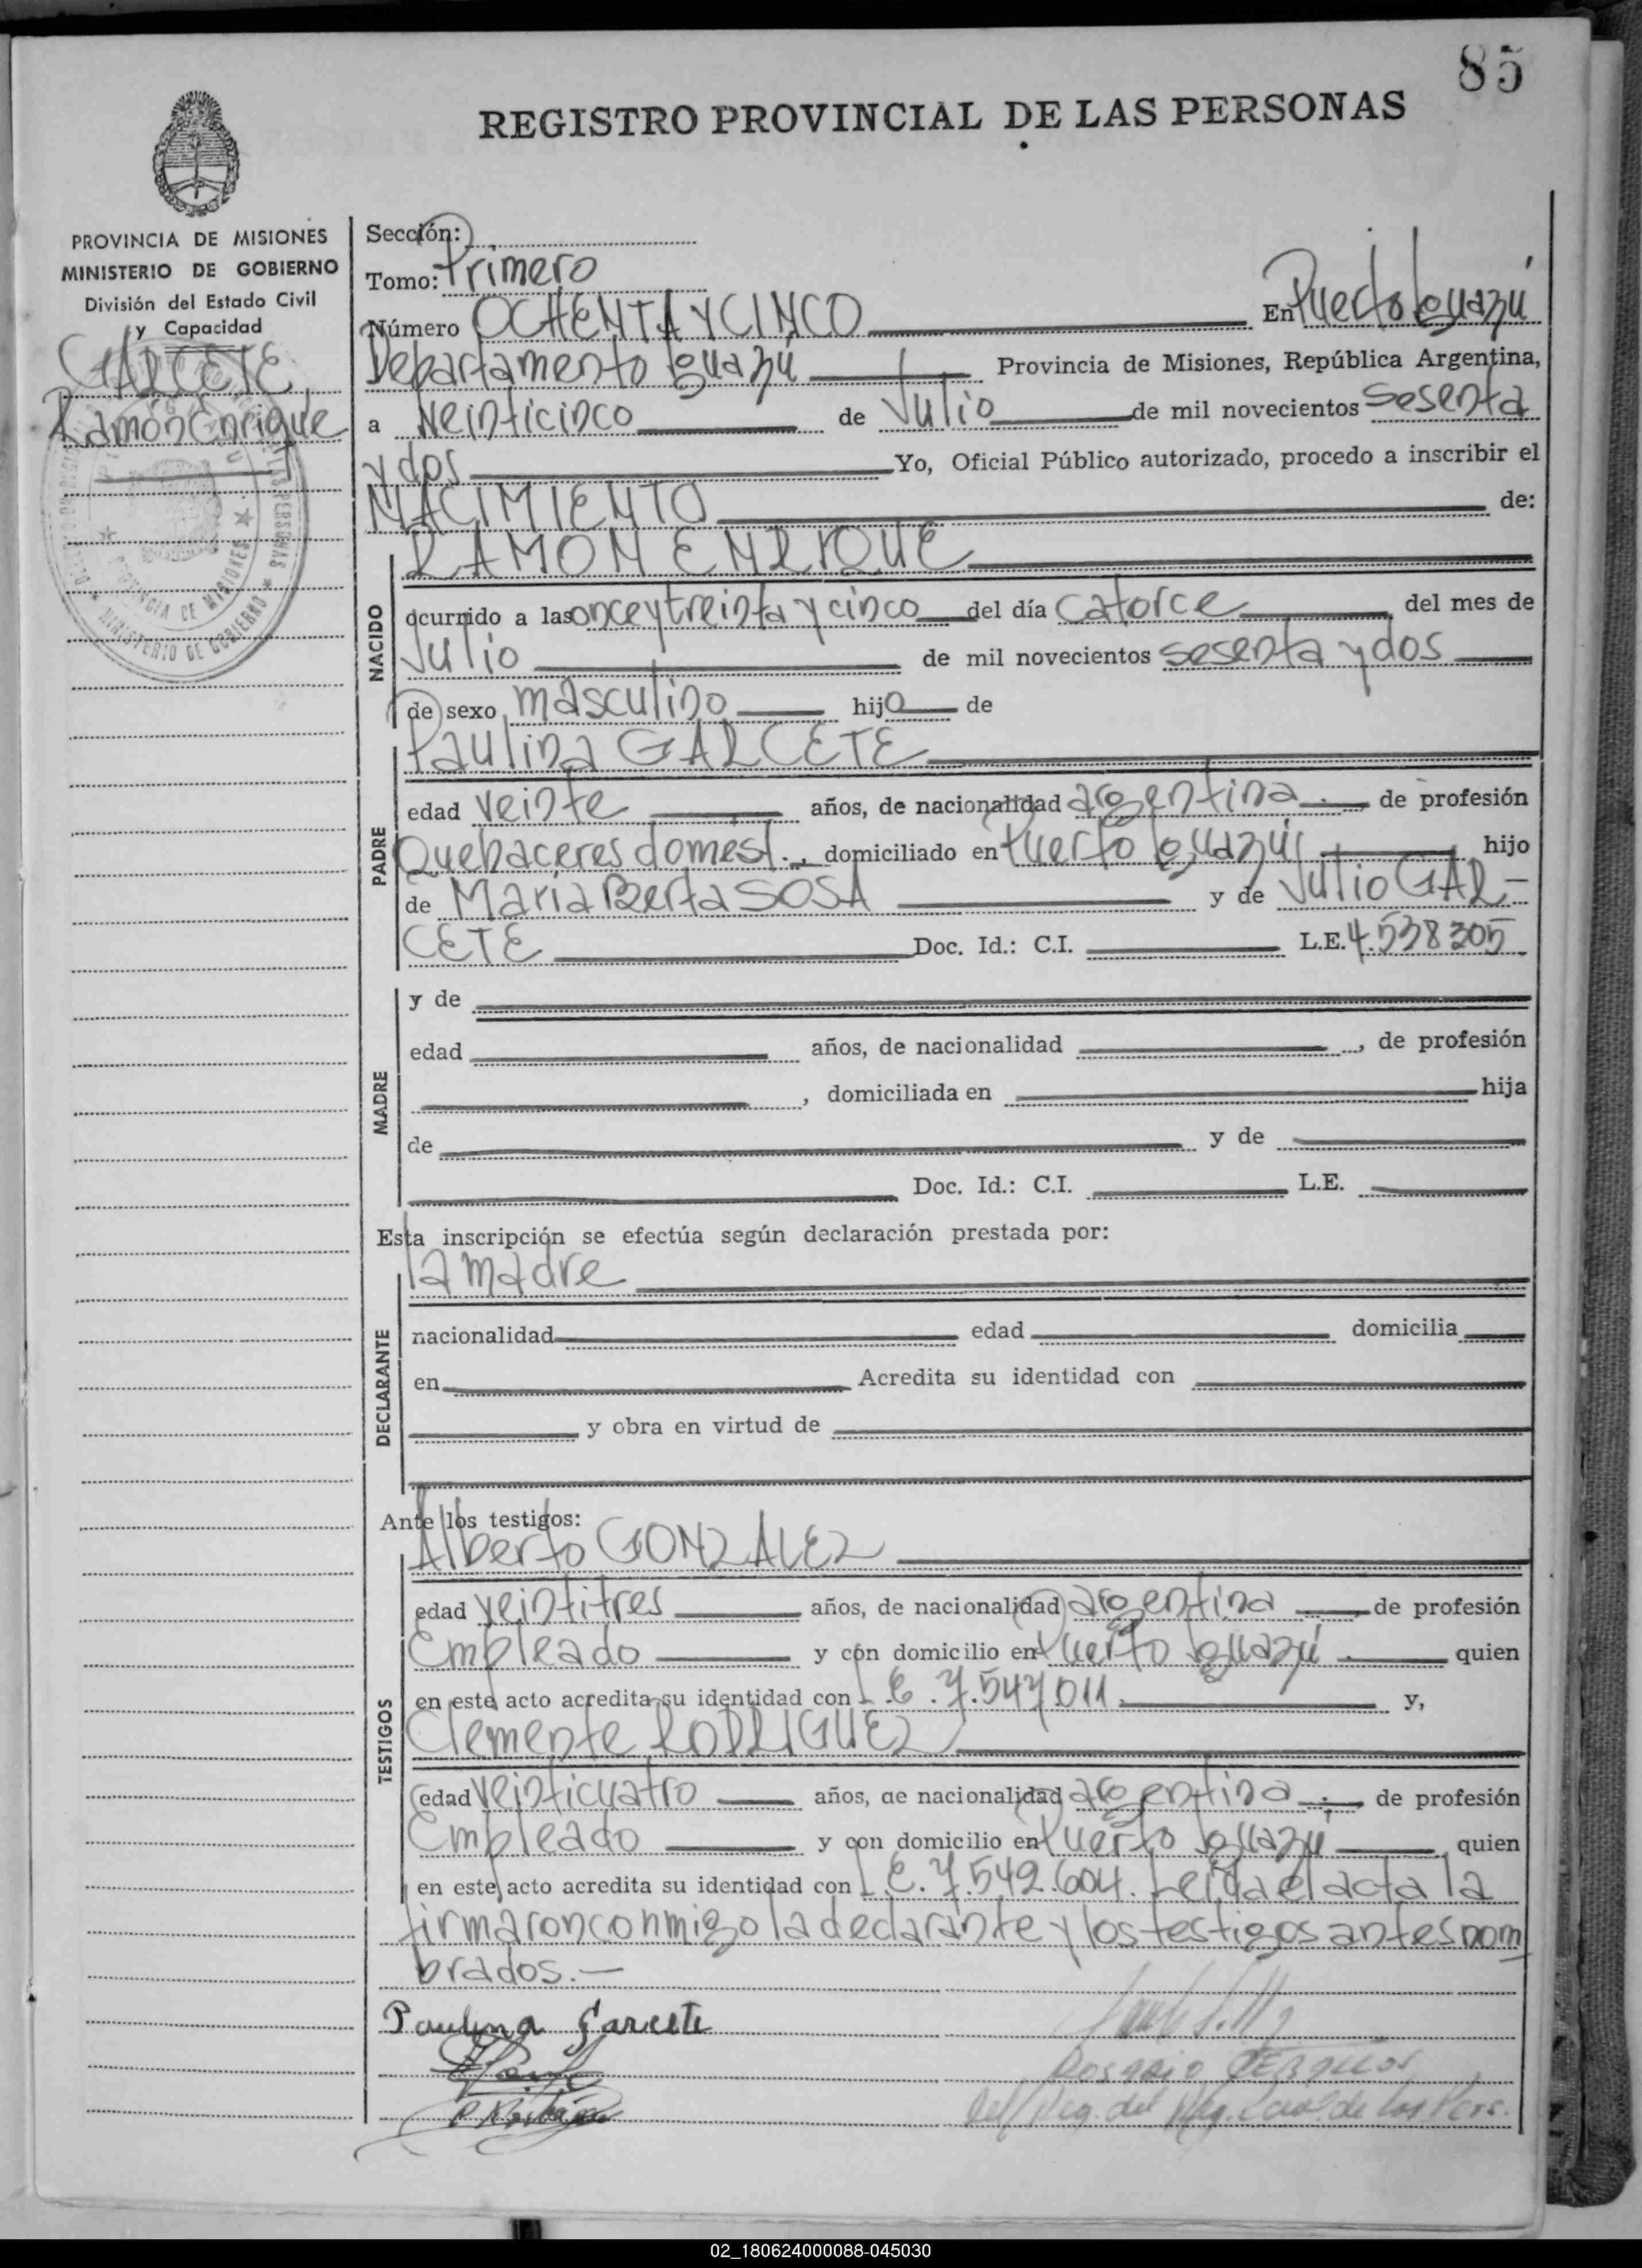 85
REGISTRO PROVINCIAL DE LAS PERSONAS
PROVINCIA DE MISIONES
MINISTERIO DE GOBIERNO
División del Estado Civil
y Capacidad
GARCETE
Ramón Enrique
Sección:
Tomo: Primero
Número OCHENTA Y CINCO En Puerto Iguazú
Departamento Iguazú Provincia de Misiones, República Argentina,
a Veinticinco de Julio de mil novecientos sesenta
y dos Yo, Oficial Público autorizado, procedo a inscribir el
NACIMIENTO de:
RAMON ENRIQUE
NACIDO
ocurrido a las once y treinta y cinco del día catorce del mes de
Julio de mil novecientos sesenta y dos
de sexo masculino hijo de
Paulina GARCETE
PADRE
edad veinte años, de nacionalidad argentina.- de profesión
Quehaceres domést.-, domiciliado en Puerto Iguazú, hijo
de María Berta SOSA y de Julio GAR-
CETE Doc. Id.: C.I. L.E. 4.538305
MADRE
y de
edad años, de nacionalidad , de profesión
, domiciliada en hija
de y de
Doc. Id.: C.I. L.E.
Esta inscripción se efectúa según declaración prestada por:
la madre
DECLARANTE
nacionalidad edad domicilia
en Acredita su identidad con
y obra en virtud de
Ante los testigos:
Alberto GONZALEZ
TESTIGOS
edad veintitres años, de nacionalidad argentina de profesión
Empleado y con domicilio en Puerto Iguazú quien
en este acto acredita su identidad con L.E. 7.547.011 y,
Clemente RODRIGUEZ
edad veinticuatro años, de nacionalidad argentina.- de profesión
Empleado y con domicilio en Puerto Iguazú quien
en este acto acredita su identidad con L.E. 7.549.604. Leida el acta la
firmaron conmigo la declarante y los testigos antes nom
brados.-
Paulina Garcete
de los Pers.
PROVINCIA DE MISIONES
MINISTERIO DE GOBIERNO
02_180624000088-045030